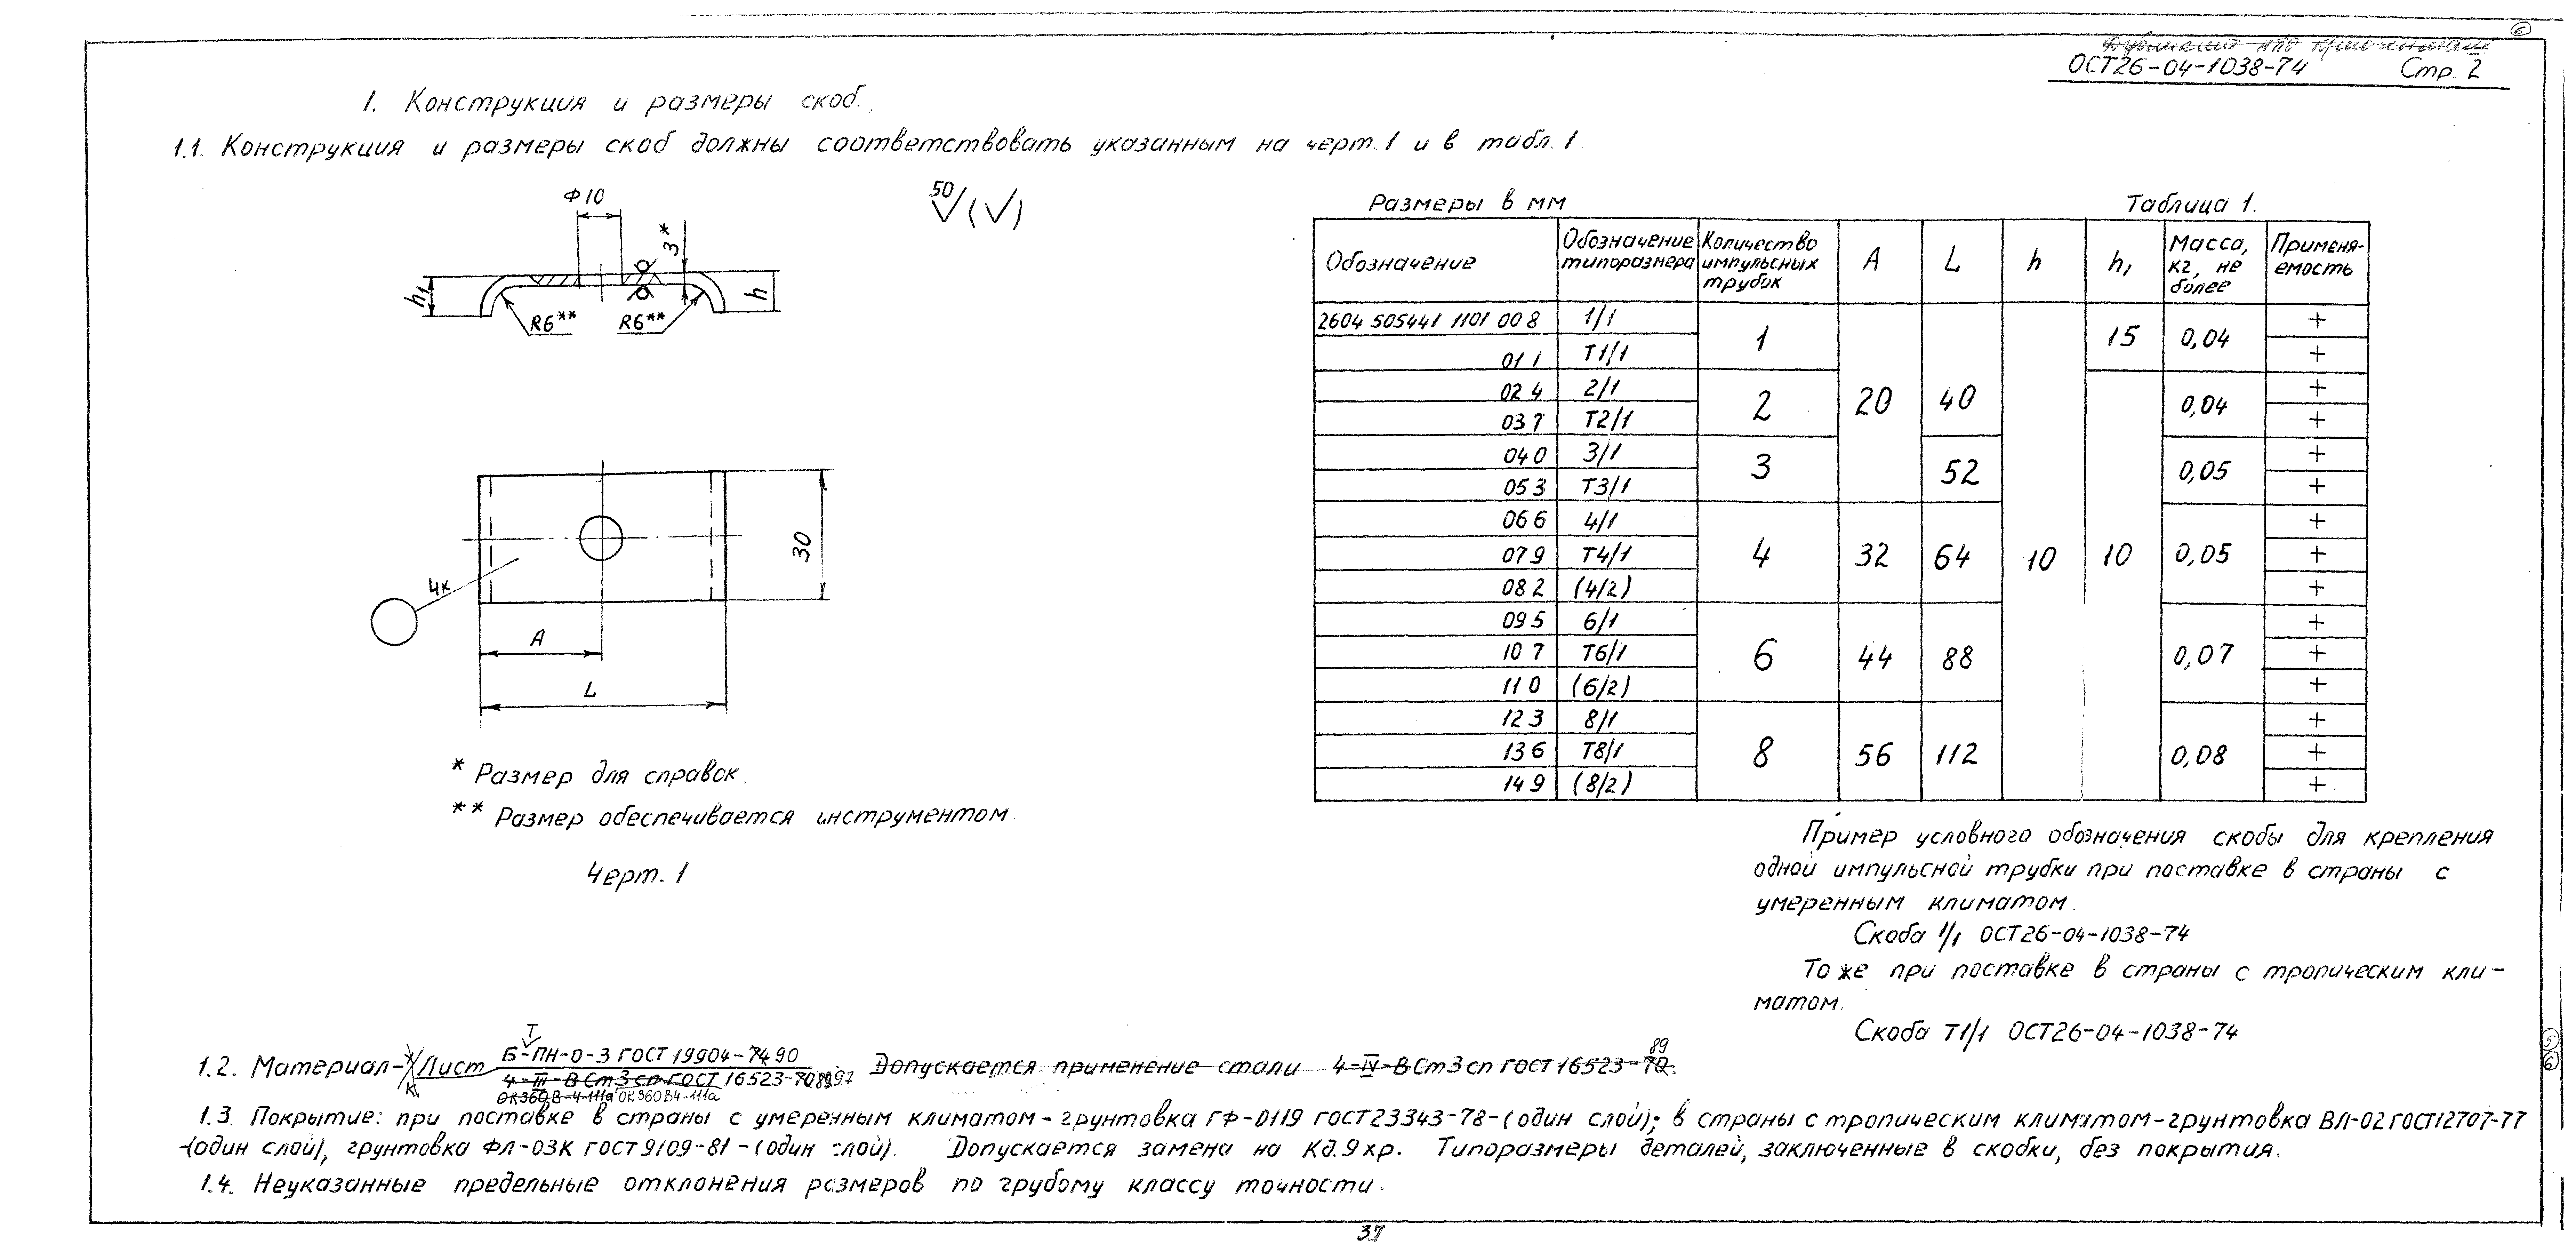 6
Дубликат НПО Криогенмаш
ОСТ26-04-1038-74 Стр. 2
1. Конструкция и размеры скоб.
1.1. Конструкция и размеры скоб должны соответствовать указанным на черт. 1 и в табл. 1.
Ф10
3*
h1
h
R6**
R6**
50 (√)
4к
30
A
L
* Размер для справок.
** Размер обеспечивается инструментом
Черт. 1
Размеры в мм Таблица 1.
Обозначение | Обозначение типоразмера | Количество импульсных трубок | A | L | h | h1 | Масса, кг, не более | Применяемость
2604 505441 1101 00 8 | 1/1 | 1 | 20 | 40 | 10 | 15 | 0,04 | +
01 1 | Т1/1 | +
02 4 | 2/1 | 2 | 10 | 0,04 | +
03 7 | Т2/1 | +
04 0 | 3/1 | 3 | 52 | 0,05 | +
05 3 | Т3/1 | +
06 6 | 4/1 | 4 | 32 | 64 | 0,05 | +
07 9 | Т4/1 | +
08 2 | (4/2) | +
09 5 | 6/1 | 6 | 44 | 88 | 0,07 | +
10 7 | Т6/1 | +
11 0 | (6/2) | +
12 3 | 8/1 | 8 | 56 | 112 | 0,08 | +
13 6 | Т8/1 | +
14 9 | (8/2) | +
Пример условного обозначения скобы для крепления
одной импульсной трубки при поставке в страны с
умеренным климатом.
Скоба 1/1 ОСТ26-04-1038-74
То же при поставке в страны с тропическим кли-
матом.
Скоба Т1/1 ОСТ26-04-1038-74
Т
1.2. Материал - Лист Б-ПН-О-3 ГОСТ 19904-74 90
4-III-В Ст3сп ГОСТ 16523-70 89 97 Допускается применение стали 4-IV-В Ст3сп ГОСТ 16523-70. 89
ОК360В-4-111а ОК360В4-111а
1.3. Покрытие: при поставке в страны с умеренным климатом - грунтовка ГФ-0119 ГОСТ23343-78-(один слой); в страны с тропическим климатом-грунтовка ВЛ-02 ГОСТ12707-77
-(один слой), грунтовка ФЛ-03К ГОСТ9109-81-(один слой). Допускается замена на Кд.9хр. Типоразмеры деталей, заключенные в скобки, без покрытия.
1.4. Неуказанные предельные отклонения размеров по грубому классу точности.
37